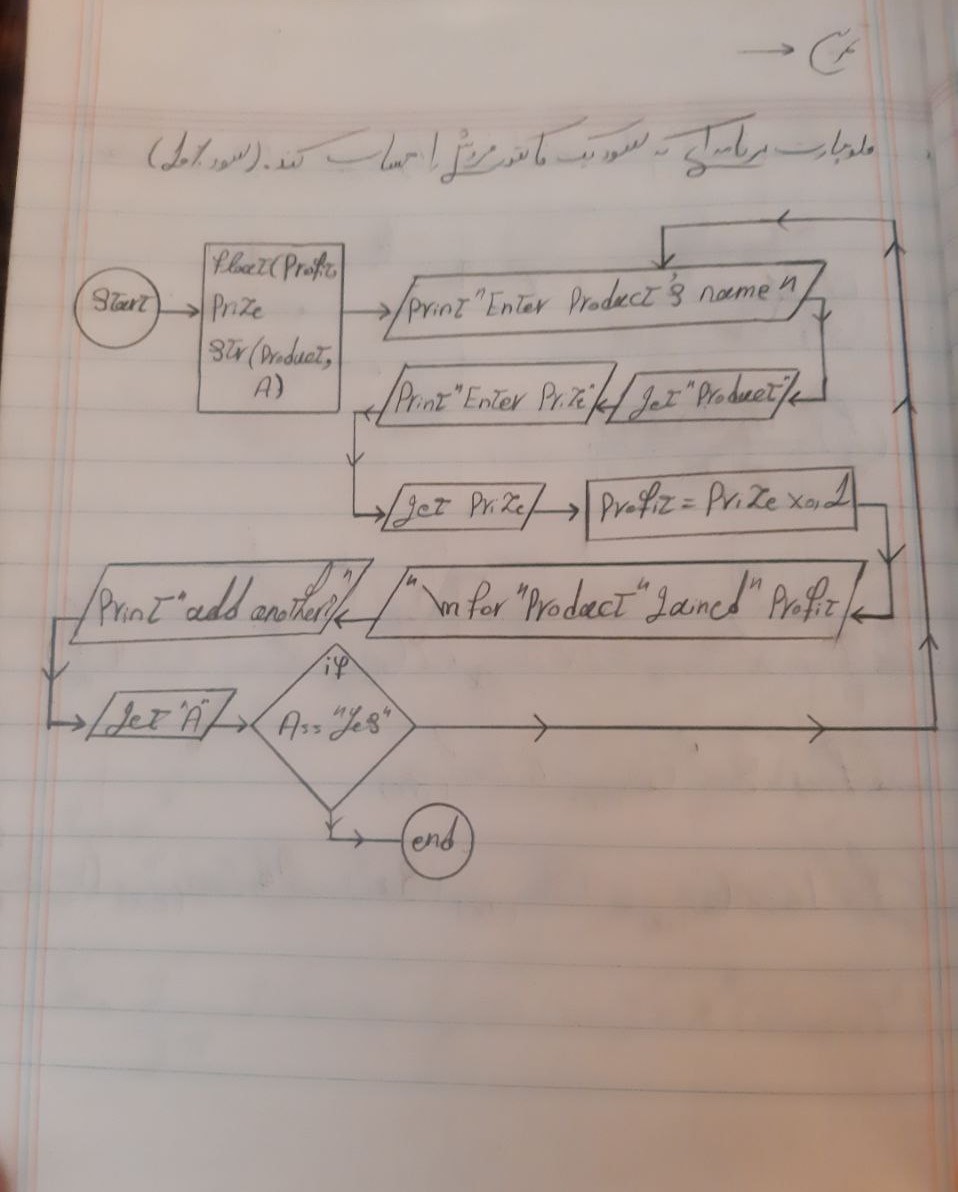 فلوچارت برنامه‌ای که سود یک فاکتور فروش را حساب کند. (سود ٪۱۰)
Start
float(Profit,
Prize
str(Product,
A)
Print "Enter Product's name"
get "Product"
Print "Enter Prize"
get Prize
Profit = Prize x0,1
"\n for "Product" gained" Profit
Print "add another?"
get "A"
if
A== "yes"
end